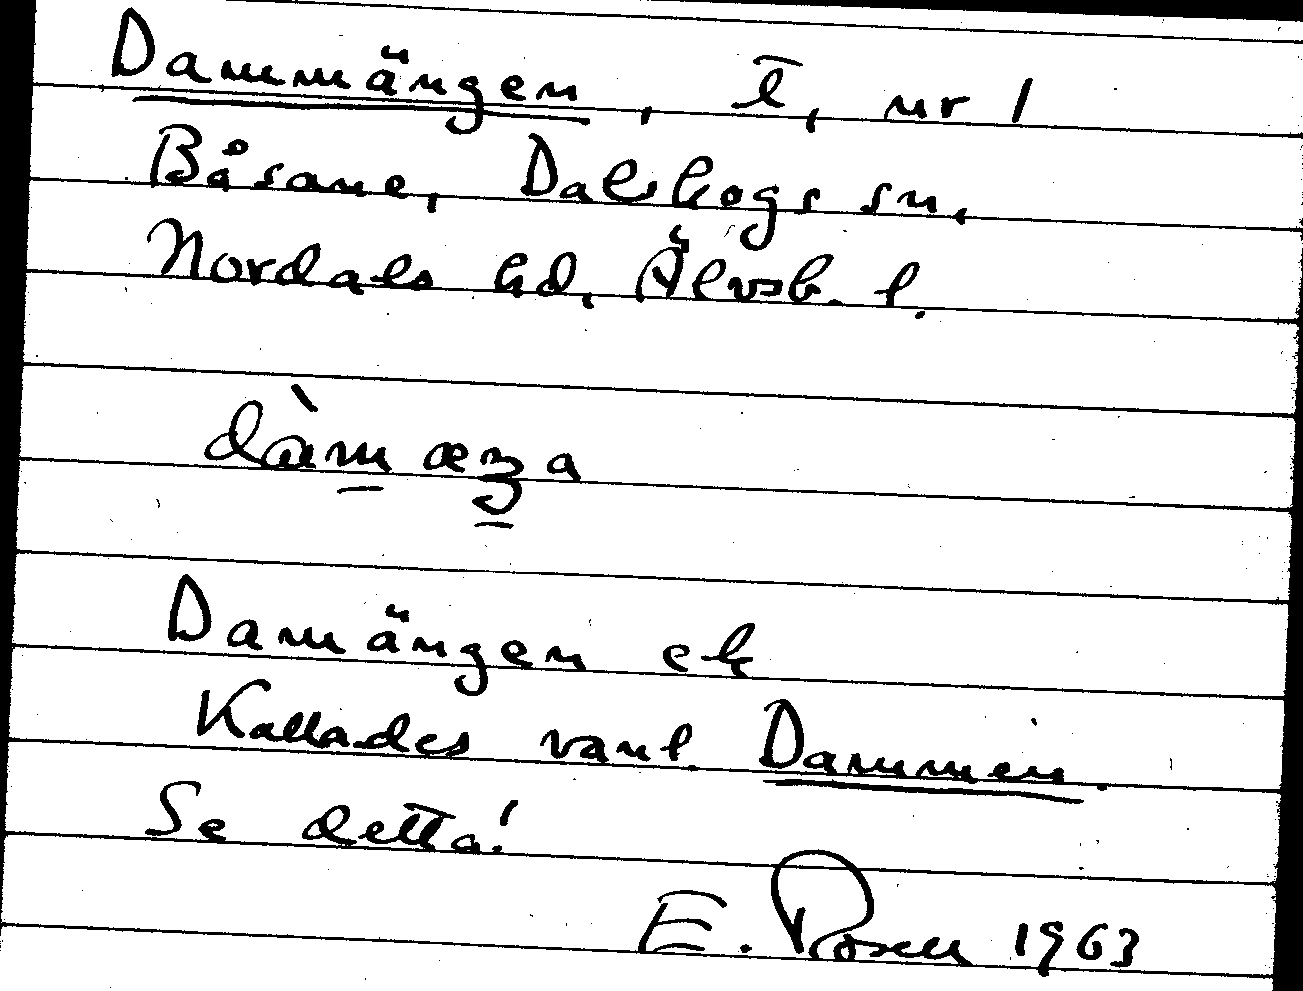 Dammängen, l̄, nr 1
Båsane, Dalskogs sn,
Nordals hd, Älvsb. l.
dàm̲æŋ̲a
Damängen ek
Kallades vanl. Dammen.
Se detta!
E. Rosén 1963